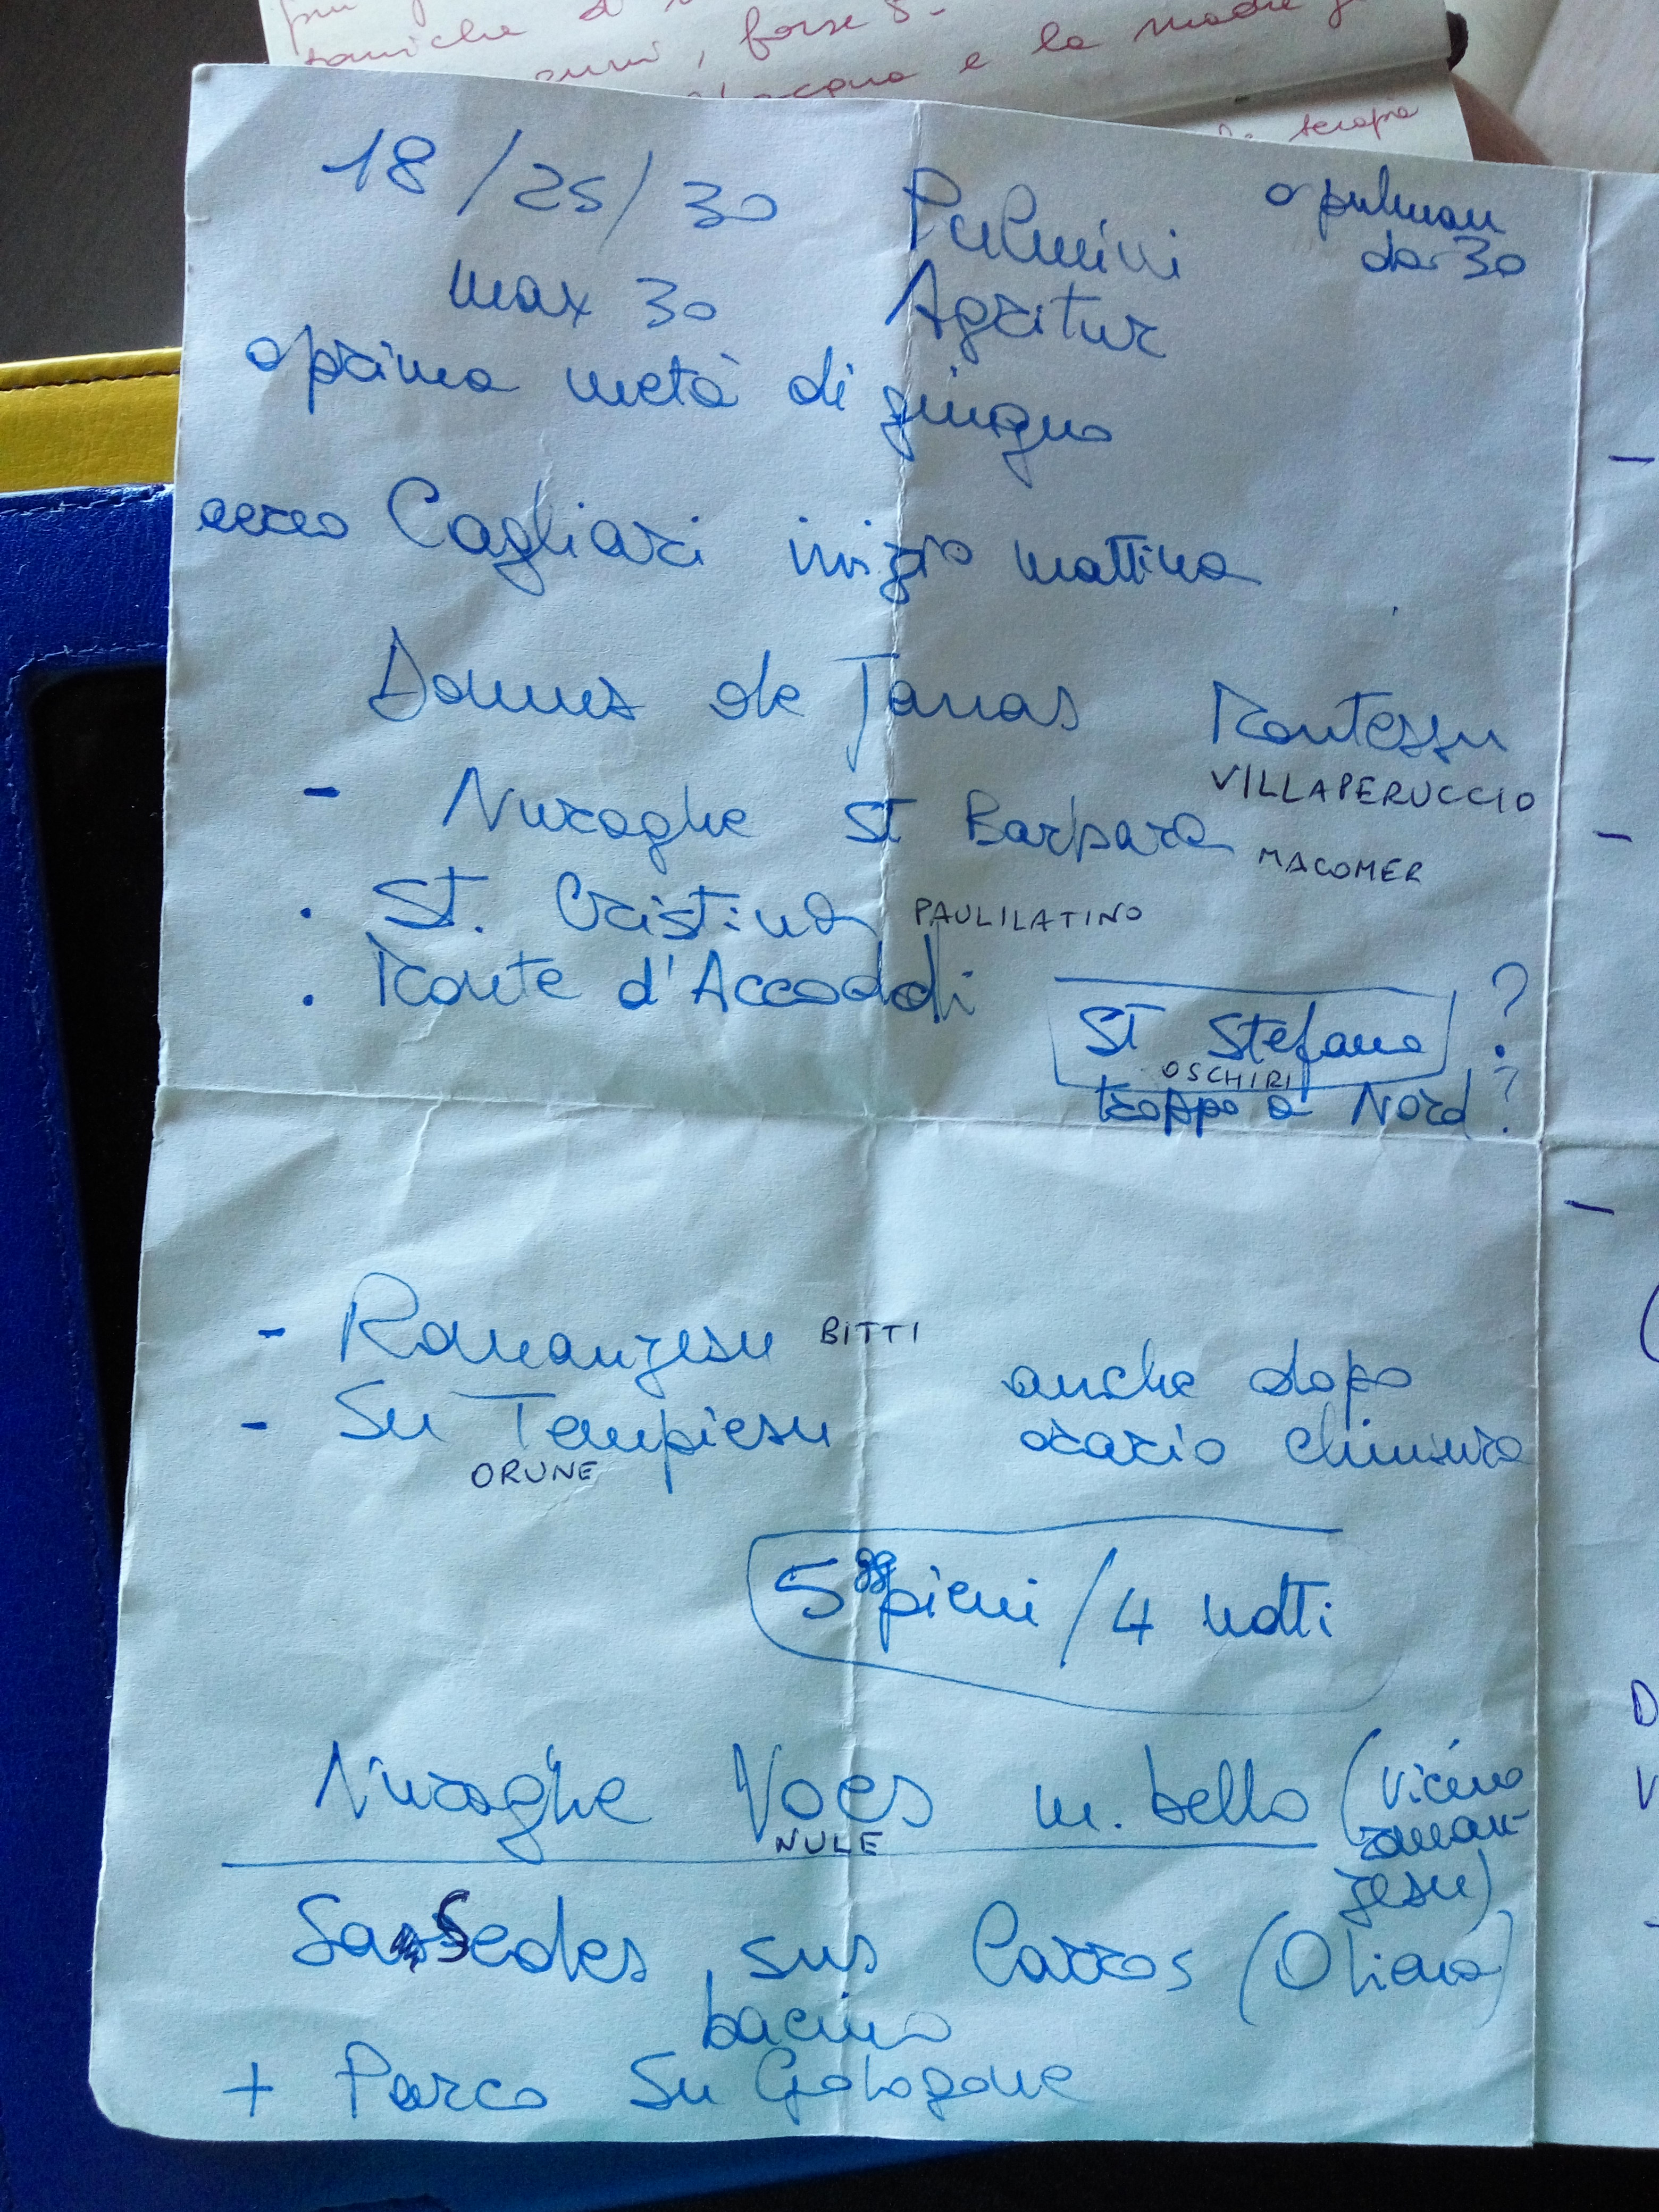 forse
e la madre
terapia
18/25/30 Pulmini o pulman
da 30
max 30 Agritur
o prima metà di giugno
aereo Cagliari inizio mattina
Domus de Janas Montessu
VILLAPERUCCIO
- Nuraghe St Barbara MACOMER
. St. Cristina PAULILATINO
. Monte d'Accoddi
St Stefano ?
OSCHIRI
troppo a Nord ?
- Romanzesu BITTI
- Su Tempiesu
ORUNE
anche dopo
orario chiusura
5 gg pieni / 4 notti
Nuraghe Voes m. bello (vicino
NULE
roman-
zesu)
Sa Sedda sus Carros (Oliena)
bacino
+ Parco Su Gologone